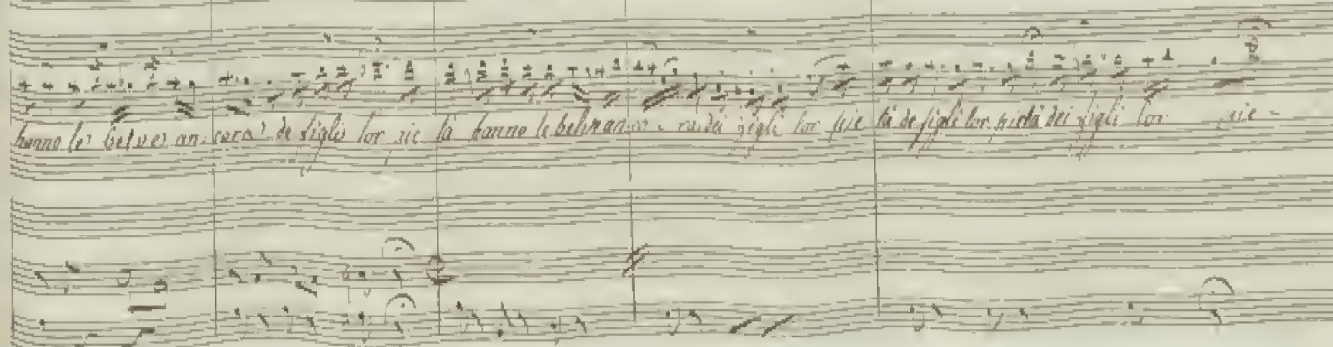 hanno le belve ancora de figli lor pie tà hanno le belve anco - ra dei figli lor pie tà de figli lor pietà dei figli lor pie -